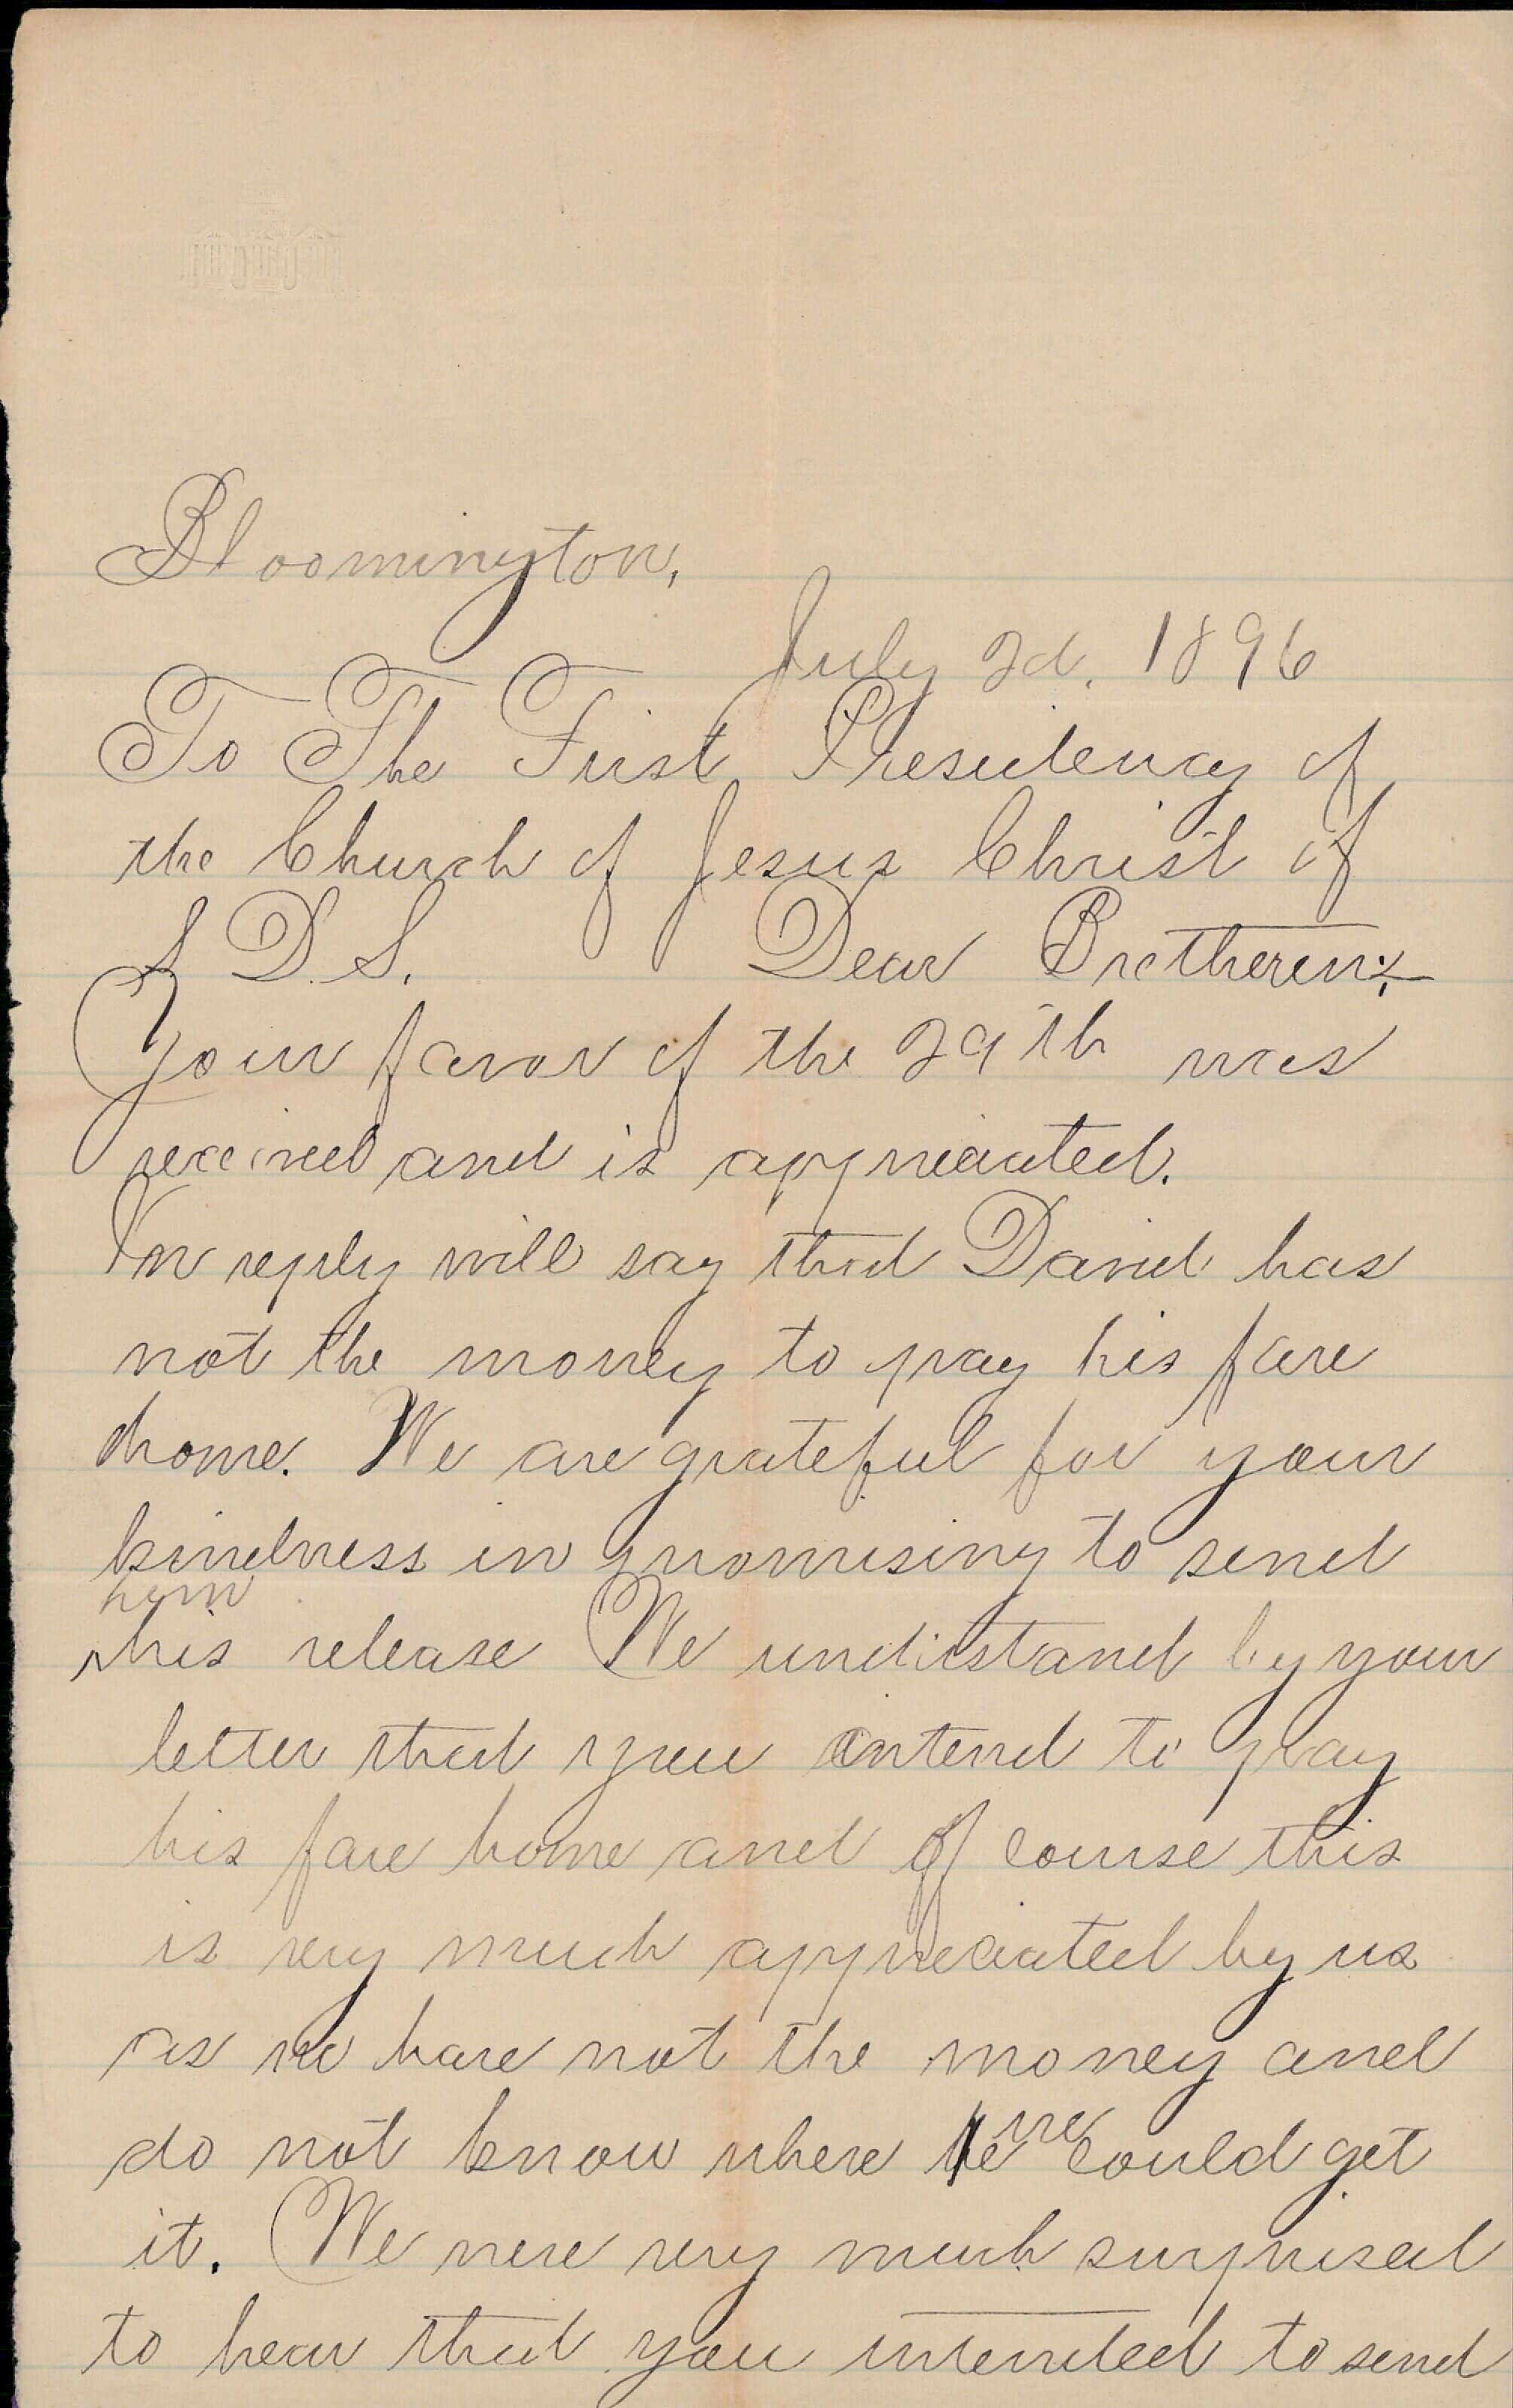 Bloomington,
July 2d. 1896
To The First Presidency of
the Church of Jesus Christ of
L D. S. Dear Bretheren:
Your favor of the 29th was
received and is appreciated.
In reply will say that David has
not the money to pay his fare
home. We are grateful for your
kindness in promising to send
him
his release We understand by your
letter that you intend to pay
his fare home and of course this
is very much appreciated by us
as we have not the money and
do not know where we could get
it. We were very much surprised
to hear that you intended to send